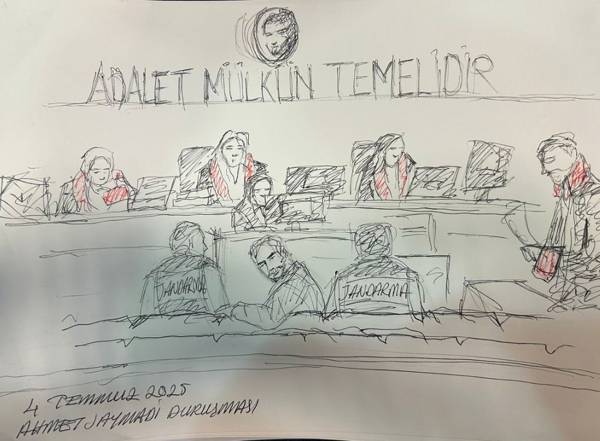 ADALET MÜLKÜN TEMELİDİR
JANDARMA JANDARMA
4 TEMMUZ 2025
AHMET JAYMADİ DURUŞMASI